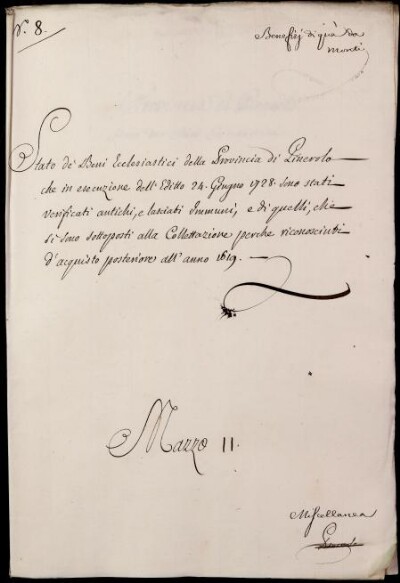 N.° 8.
Benefizj di quà da
Monti
Stato de' Beni Ecclesiastici della Provincia di Pinerolo
che in esecuzione dell'Editto 24. Giugno 1728. sono stati
verificati antichi, e lasciati Immuni, e di quelli, che
si sono sottoposti alla Collettazione perche riconosciuti
d'acquisto posteriore all'anno 1619.
Mazzo II.
Miscellanea